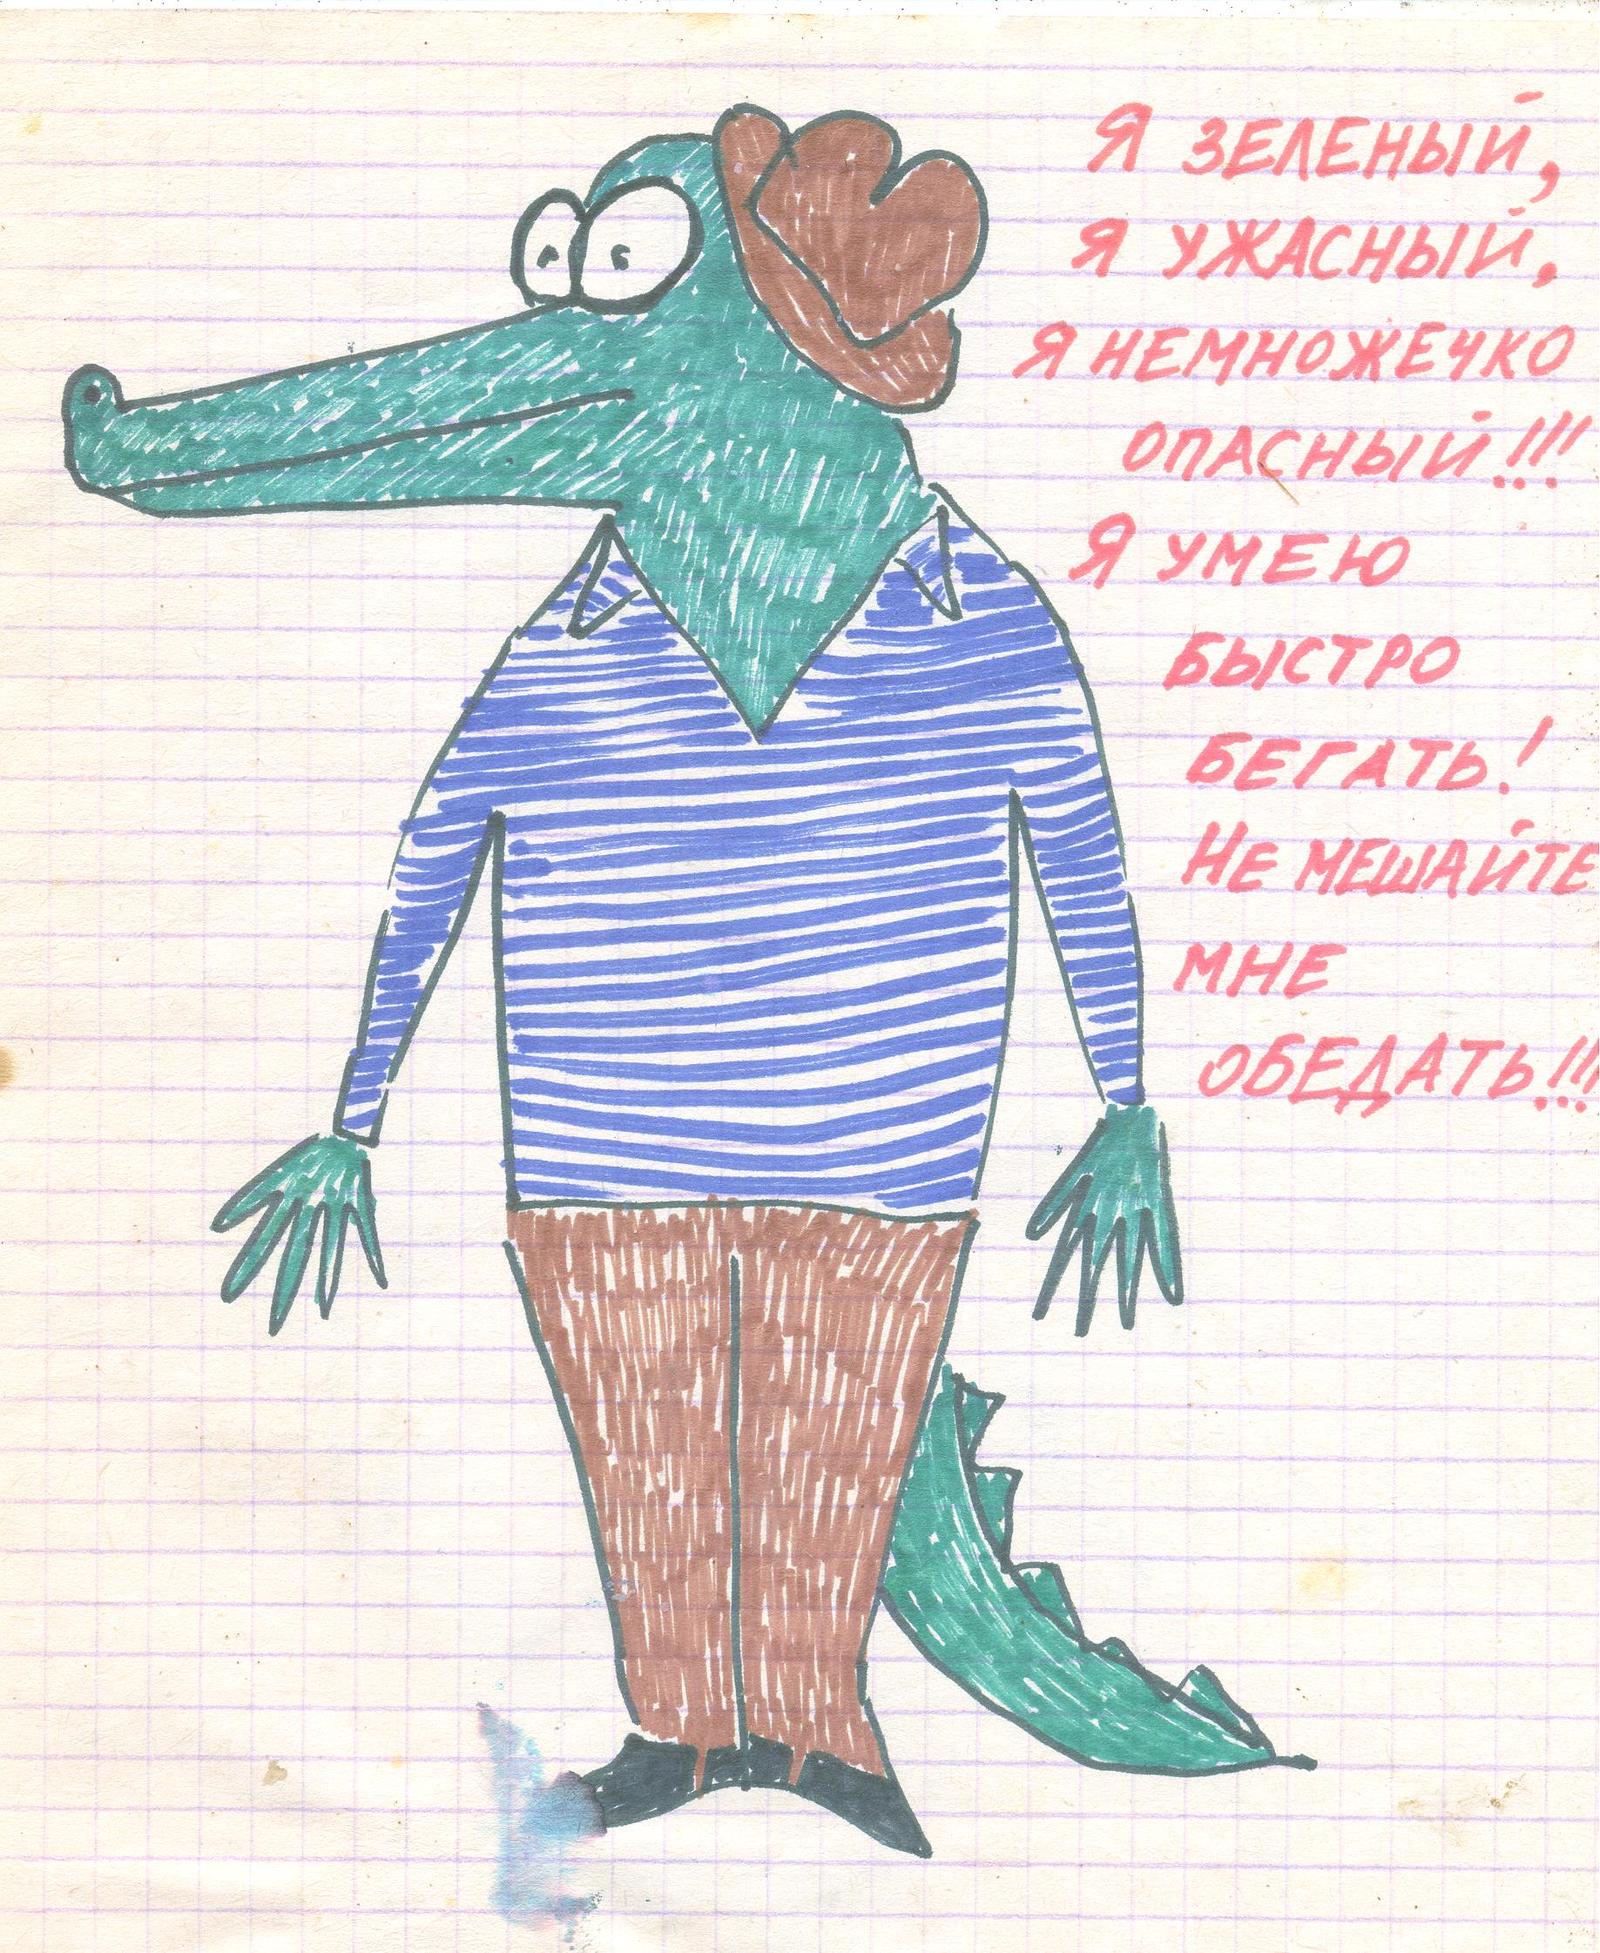 Я ЗЕЛЕНЫЙ,
Я УЖАСНЫЙ,
Я НЕМНОЖЕЧКО
ОПАСНЫЙ!!!
Я УМЕЮ
БЫСТРО
БЕГАТЬ!
НЕ МЕШАЙТЕ
МНЕ
ОБЕДАТЬ!!!